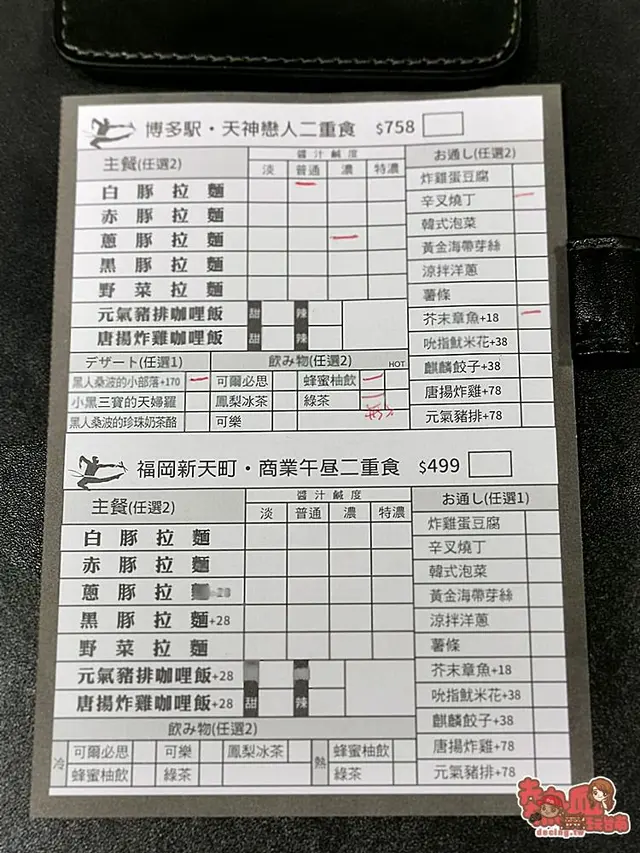 博多駅・天神戀人二重食 $758
主餐(任選2) 醬汁鹹度 お通し(任選2)
淡 普通 濃 特濃
白豚拉麵
赤豚拉麵
蔥豚拉麵
黑豚拉麵
野菜拉麵
元氣豬排咖哩飯 甜 辣
唐揚炸雞咖哩飯 甜 辣
炸雞蛋豆腐
辛叉燒丁
韓式泡菜
黃金海帶芽絲
涼拌洋蔥
薯條
芥末章魚+18
吮指魷米花+38
麒麟餃子+38
唐揚炸雞+78
元氣豬排+78
デザート(任選1) 飲み物(任選2) HOT
黑人桑波的小部落+170 可爾必思 蜂蜜柚飲
小黑三寶的天婦羅 鳳梨冰茶 綠茶
黑人桑波的珍珠奶茶酪 可樂
福岡新天町・商業午昼二重食 $499
主餐(任選2) 醬汁鹹度 お通し(任選1)
淡 普通 濃 特濃
白豚拉麵
赤豚拉麵
蔥豚拉麵+28
黑豚拉麵+28
野菜拉麵
元氣豬排咖哩飯+28
唐揚炸雞咖哩飯+28 甜 辣
炸雞蛋豆腐
辛叉燒丁
韓式泡菜
黃金海帶芽絲
涼拌洋蔥
薯條
芥末章魚+18
吮指魷米花+38
麒麟餃子+38
唐揚炸雞+78
元氣豬排+78
飲み物(任選2)
冷 可爾必思 可樂 鳳梨冰茶 熱 蜂蜜柚飲
蜂蜜柚飲 綠茶 綠茶
dacing.tw